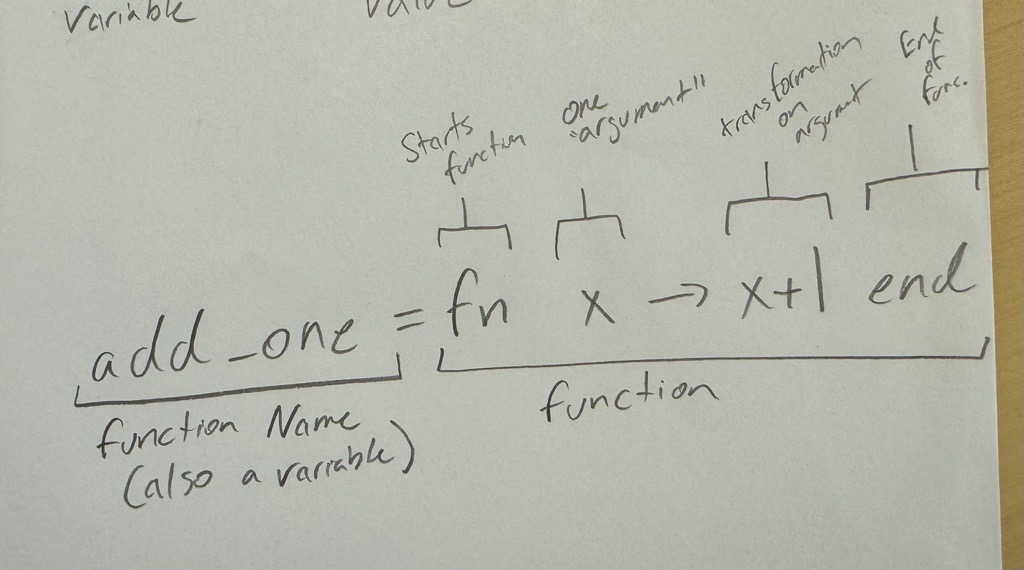 Variable
Value
Starts
function
one
"argument"
transformation
on
argument
End
of
func.
add_one = fn x → x+1 end
function Name
(also a variable)
function